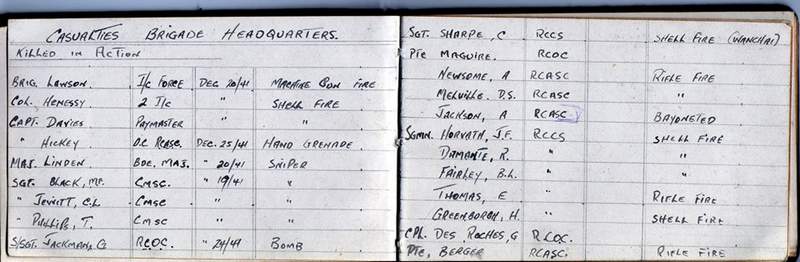 CASUALTIES BRIGADE HEADQUARTERS.
KILLED IN ACTION
BRIG. LAWSON. I/C FORCE DEC 20/41 MACHINE GUN FIRE
COL. HENESSY 2 I/C " SHELL FIRE
CAPT. DAVIES PAYMASTER " "
" HICKEY O.C. RCASC. DEC. 25/41 HAND GRENADE
MAJ. LINDEN BDE. MAJ. " 20/41 SNIPER
SGT. BLACK, CMSC. " 19/41 "
" JEWITT, C.L CMSC " "
" PHILLIPS, T. CMSC " "
S/SGT. JACKMAN, G RCOC. " 24/41 BOMB
SGT. SHARPE, C RCCS SHELL FIRE (WANCHAI)
PTE MAGUIRE. RCOC
NEWSOME, A RCASC RIFLE FIRE
MELVILLE. D.S. RCASC "
JACKSON, A RCASC BAYONETED
SGMN. HORVATH, J.F. RCCS SHELL FIRE
DAMANTE, R. " "
FAIRLEY, B.L. " "
THOMAS, E " RIFLE FIRE
GREENBERGH, H. " SHELL FIRE
CPL. DES ROCHES, G RCOC.
PTE, BERGER RCASC. RIFLE FIRE